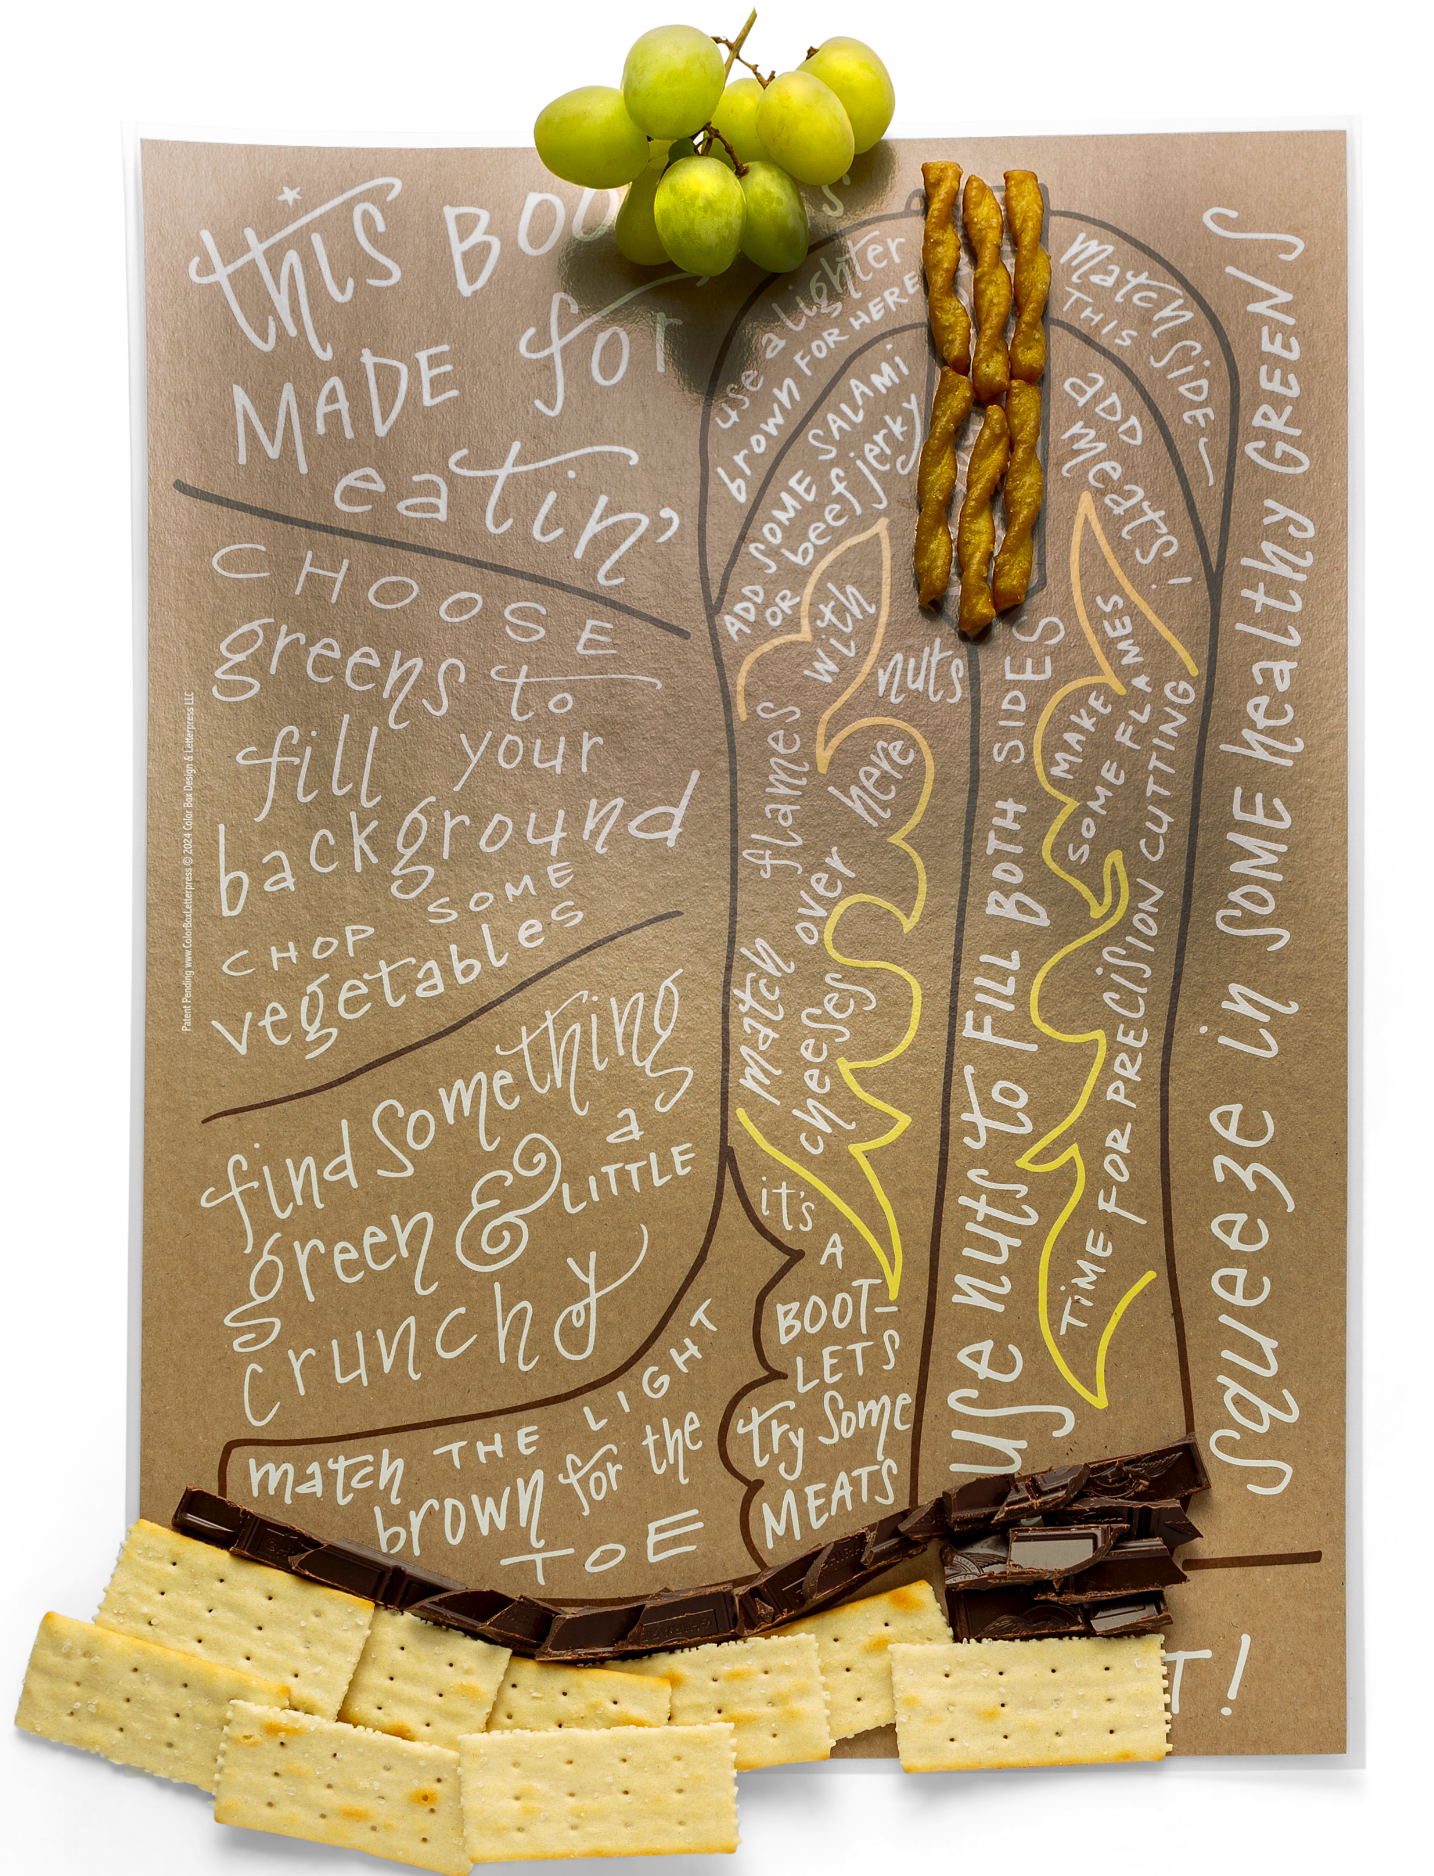 this BOO
MADE for
eatin'
CHOOSE
greens to
fill your
background
CHOP SOME
vegetables
find something
green & a LITTLE
crunchy
match THE LIGHT
brown for the
TOE
use a lighter
brown FOR HERE
ADD SOME SALAMI
OR beef jerky
with
nuts
here
flames
match over
cheeses
it's
A
BOOT-
LETS
try some
MEATS
match SIDE
THIS
ADD
meats!
MAKE
SOME FLAMES
TIME FOR PRECISION CUTTING
use nuts to FILL BOTH SIDES
squeeze in SOME healthy GREENS
T!
Patent Pending www.ColorBoxLetterpress © 2024 Color Box Design & Letterpress LLC